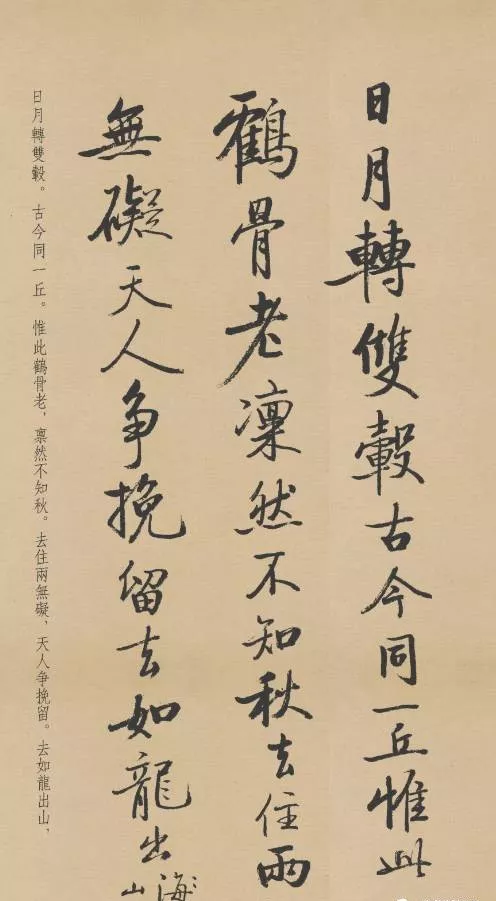 日月轉雙轂古今同一丘惟此
鶴骨老凜然不知秋去住兩
無礙天人争挽留去如龍出
山
海
日月轉雙轂。古今同一丘。惟此鶴骨老，凛然不知秋。去住兩無礙，天人争挽留。去如龍出山，